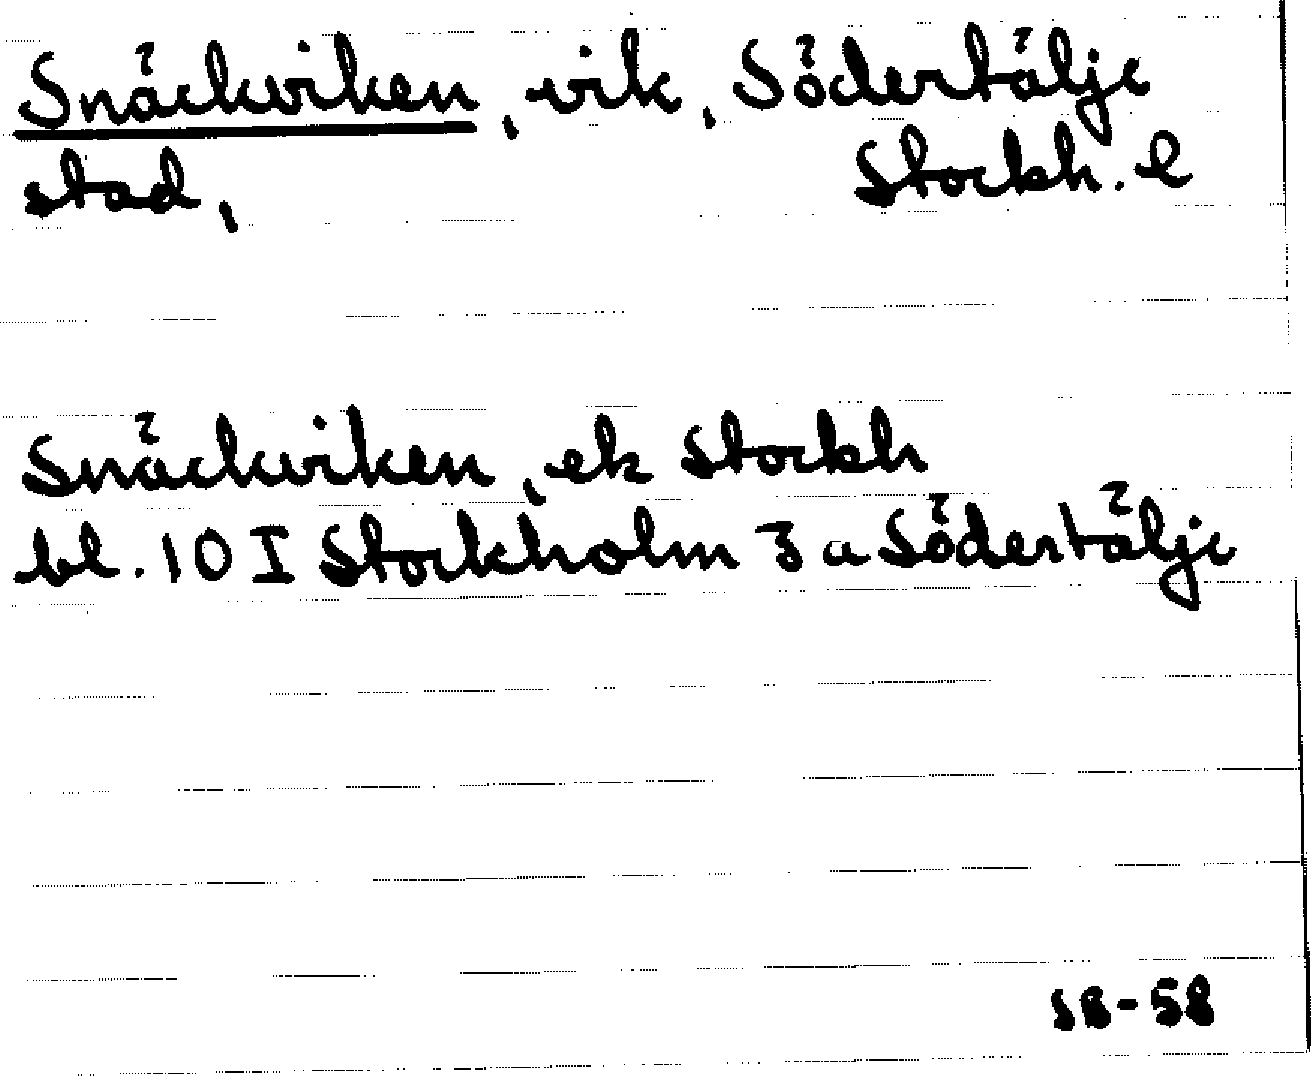 Snäckviken, vik, Södertälje
stad, Stockh. l
Snäckviken, ek Stockh
bl. 10 I Stockholm 3 a Södertälje
SB-58